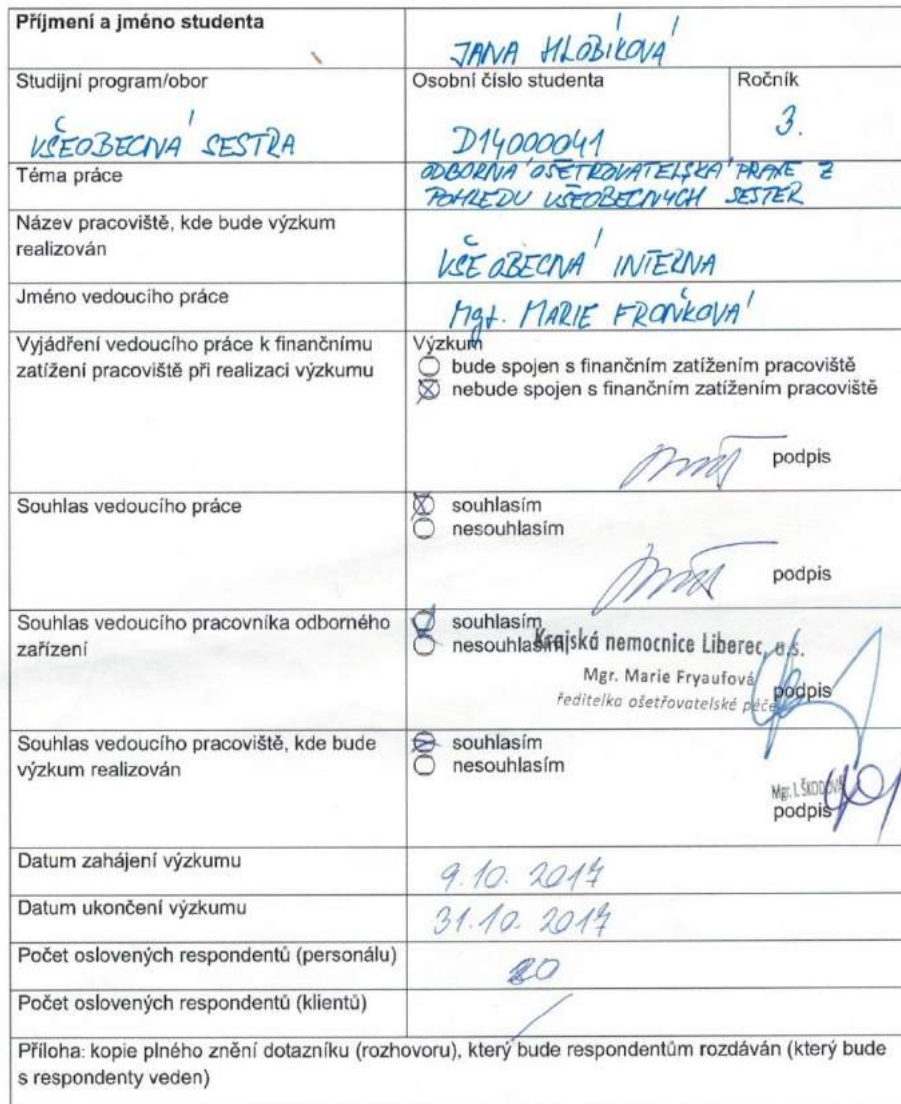 Příjmení a jméno studenta
JANA HLOBÍKOVÁ
Studijní program/obor
VŠEOBECNÁ SESTRA
Osobní číslo studenta
D14000041
Ročník
3.
Téma práce
ODBORNÁ OŠETŘOVATELSKÁ PRAXE Z
POHLEDU VŠEOBECNÝCH SESTER
Název pracoviště, kde bude výzkum
realizován
VŠEOBECNÁ INTERNA
Jméno vedoucího práce
Mgr. MARIE FROŇKOVÁ
Vyjádření vedoucího práce k finančnímu
zatížení pracoviště při realizaci výzkumu
Výzkum
bude spojen s finančním zatížením pracoviště
nebude spojen s finančním zatížením pracoviště
podpis
Souhlas vedoucího práce
souhlasím
nesouhlasím
podpis
Souhlas vedoucího pracovníka odborného
zařízení
souhlasím
nesouhlasím
Krajská nemocnice Liberec, a.s.
Mgr. Marie Fryaufová
ředitelka ošetřovatelské péče
podpis
Souhlas vedoucího pracoviště, kde bude
výzkum realizován
souhlasím
nesouhlasím
Mgr. I. ŠKODOVÁ
podpis
Datum zahájení výzkumu
9.10. 2017
Datum ukončení výzkumu
31.10. 2017
Počet oslovených respondentů (personálu)
Počet oslovených respondentů (klientů)
Příloha: kopie plného znění dotazníku (rozhovoru), který bude respondentům rozdáván (který bude
s respondenty veden)